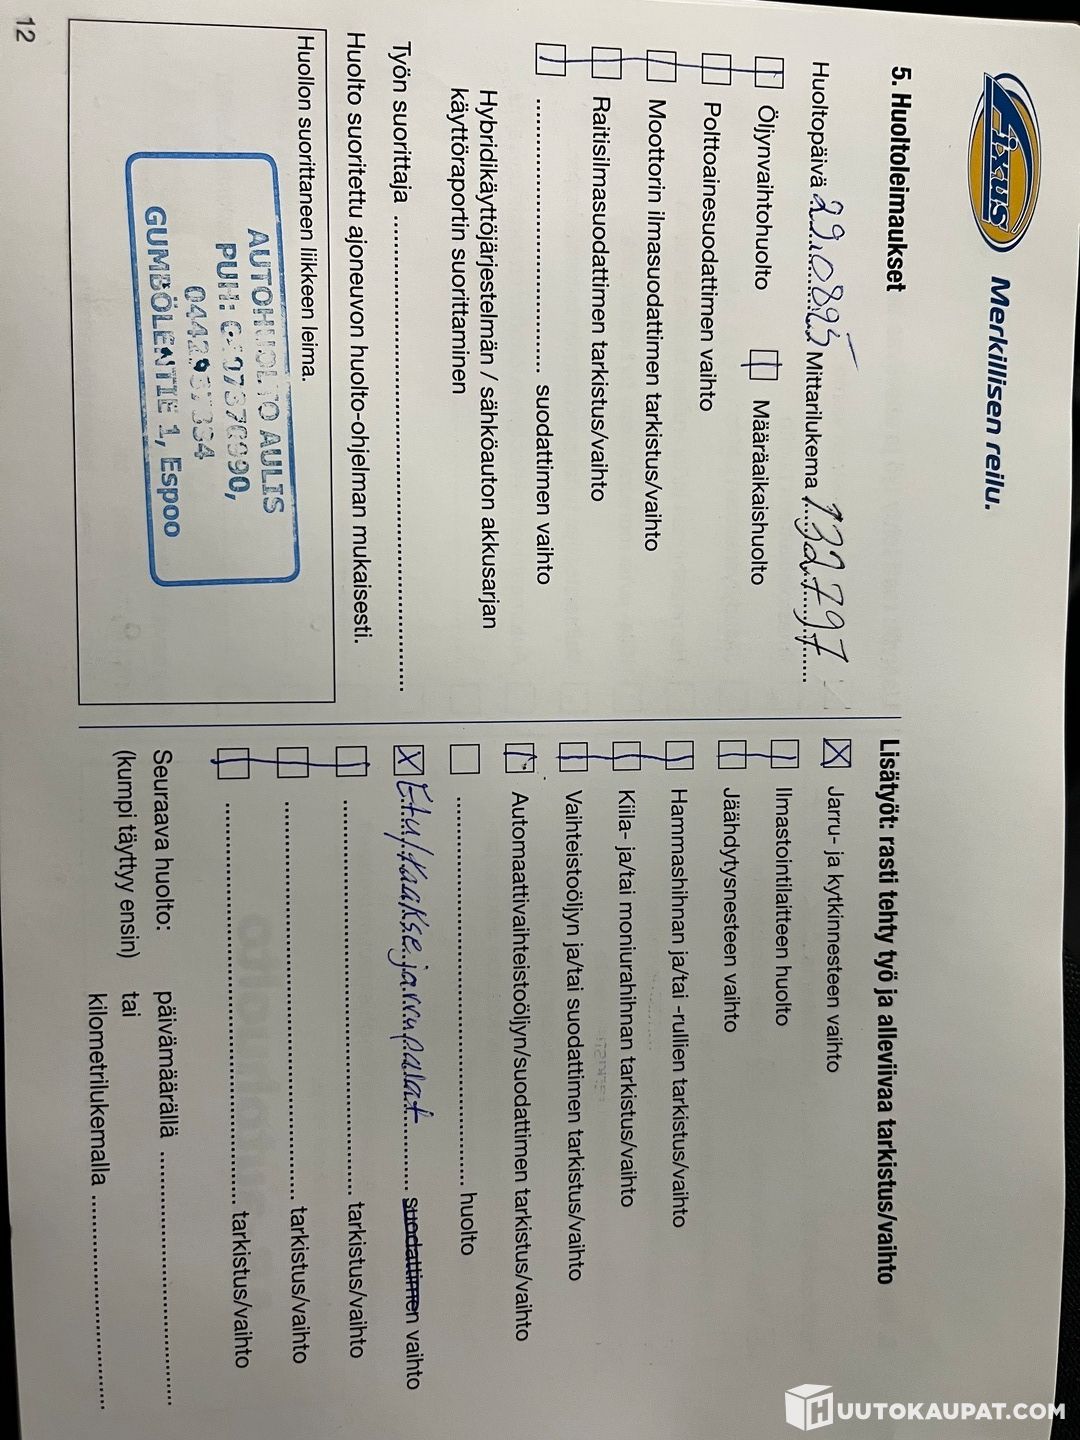 Fixus Merkillisen reilu.
5. Huoltoleimaukset
Huoltopäivä 22.08.25 Mittarilukema 132797
Öljynvaihtohuolto Määräaikaishuolto
Polttoainesuodattimen vaihto
Moottorin ilmasuodattimen tarkistus/vaihto
Raitisilmasuodattimen tarkistus/vaihto
........................................ suodattimen vaihto
Hybridikäyttöjärjestelmän / sähköauton akkusarjan
käyttöraportin suorittaminen
Työn suorittaja ........................................
Huolto suoritettu ajoneuvon huolto-ohjelman mukaisesti.
Huollon suorittaneen liikkeen leima.
AUTOHUOLTO AULIS
PUH:
GUMBÖLENTIE 1, Espoo
12
Lisätyöt: rasti tehty työ ja alleviivaa tarkistus/vaihto
Jarru- ja kytkinnesteen vaihto
Ilmastointilaitteen huolto
Jäähdytysnesteen vaihto
Hammashihnan ja/tai -rullien tarkistus/vaihto
Kiila- ja/tai moniurahihnan tarkistus/vaihto
Vaihteistoöljyn ja/tai suodattimen tarkistus/vaihto
Automaattivaihteistoöljyn/suodattimen tarkistus/vaihto
........................................ huolto
Etu/taakse jarrupalat suodattimen vaihto
........................................ tarkistus/vaihto
........................................ tarkistus/vaihto
........................................ tarkistus/vaihto
Seuraava huolto: päivämäärällä ........................................
(kumpi täyttyy ensin) tai
kilometrilukemalla ........................................
HUUTOKAUPAT.COM